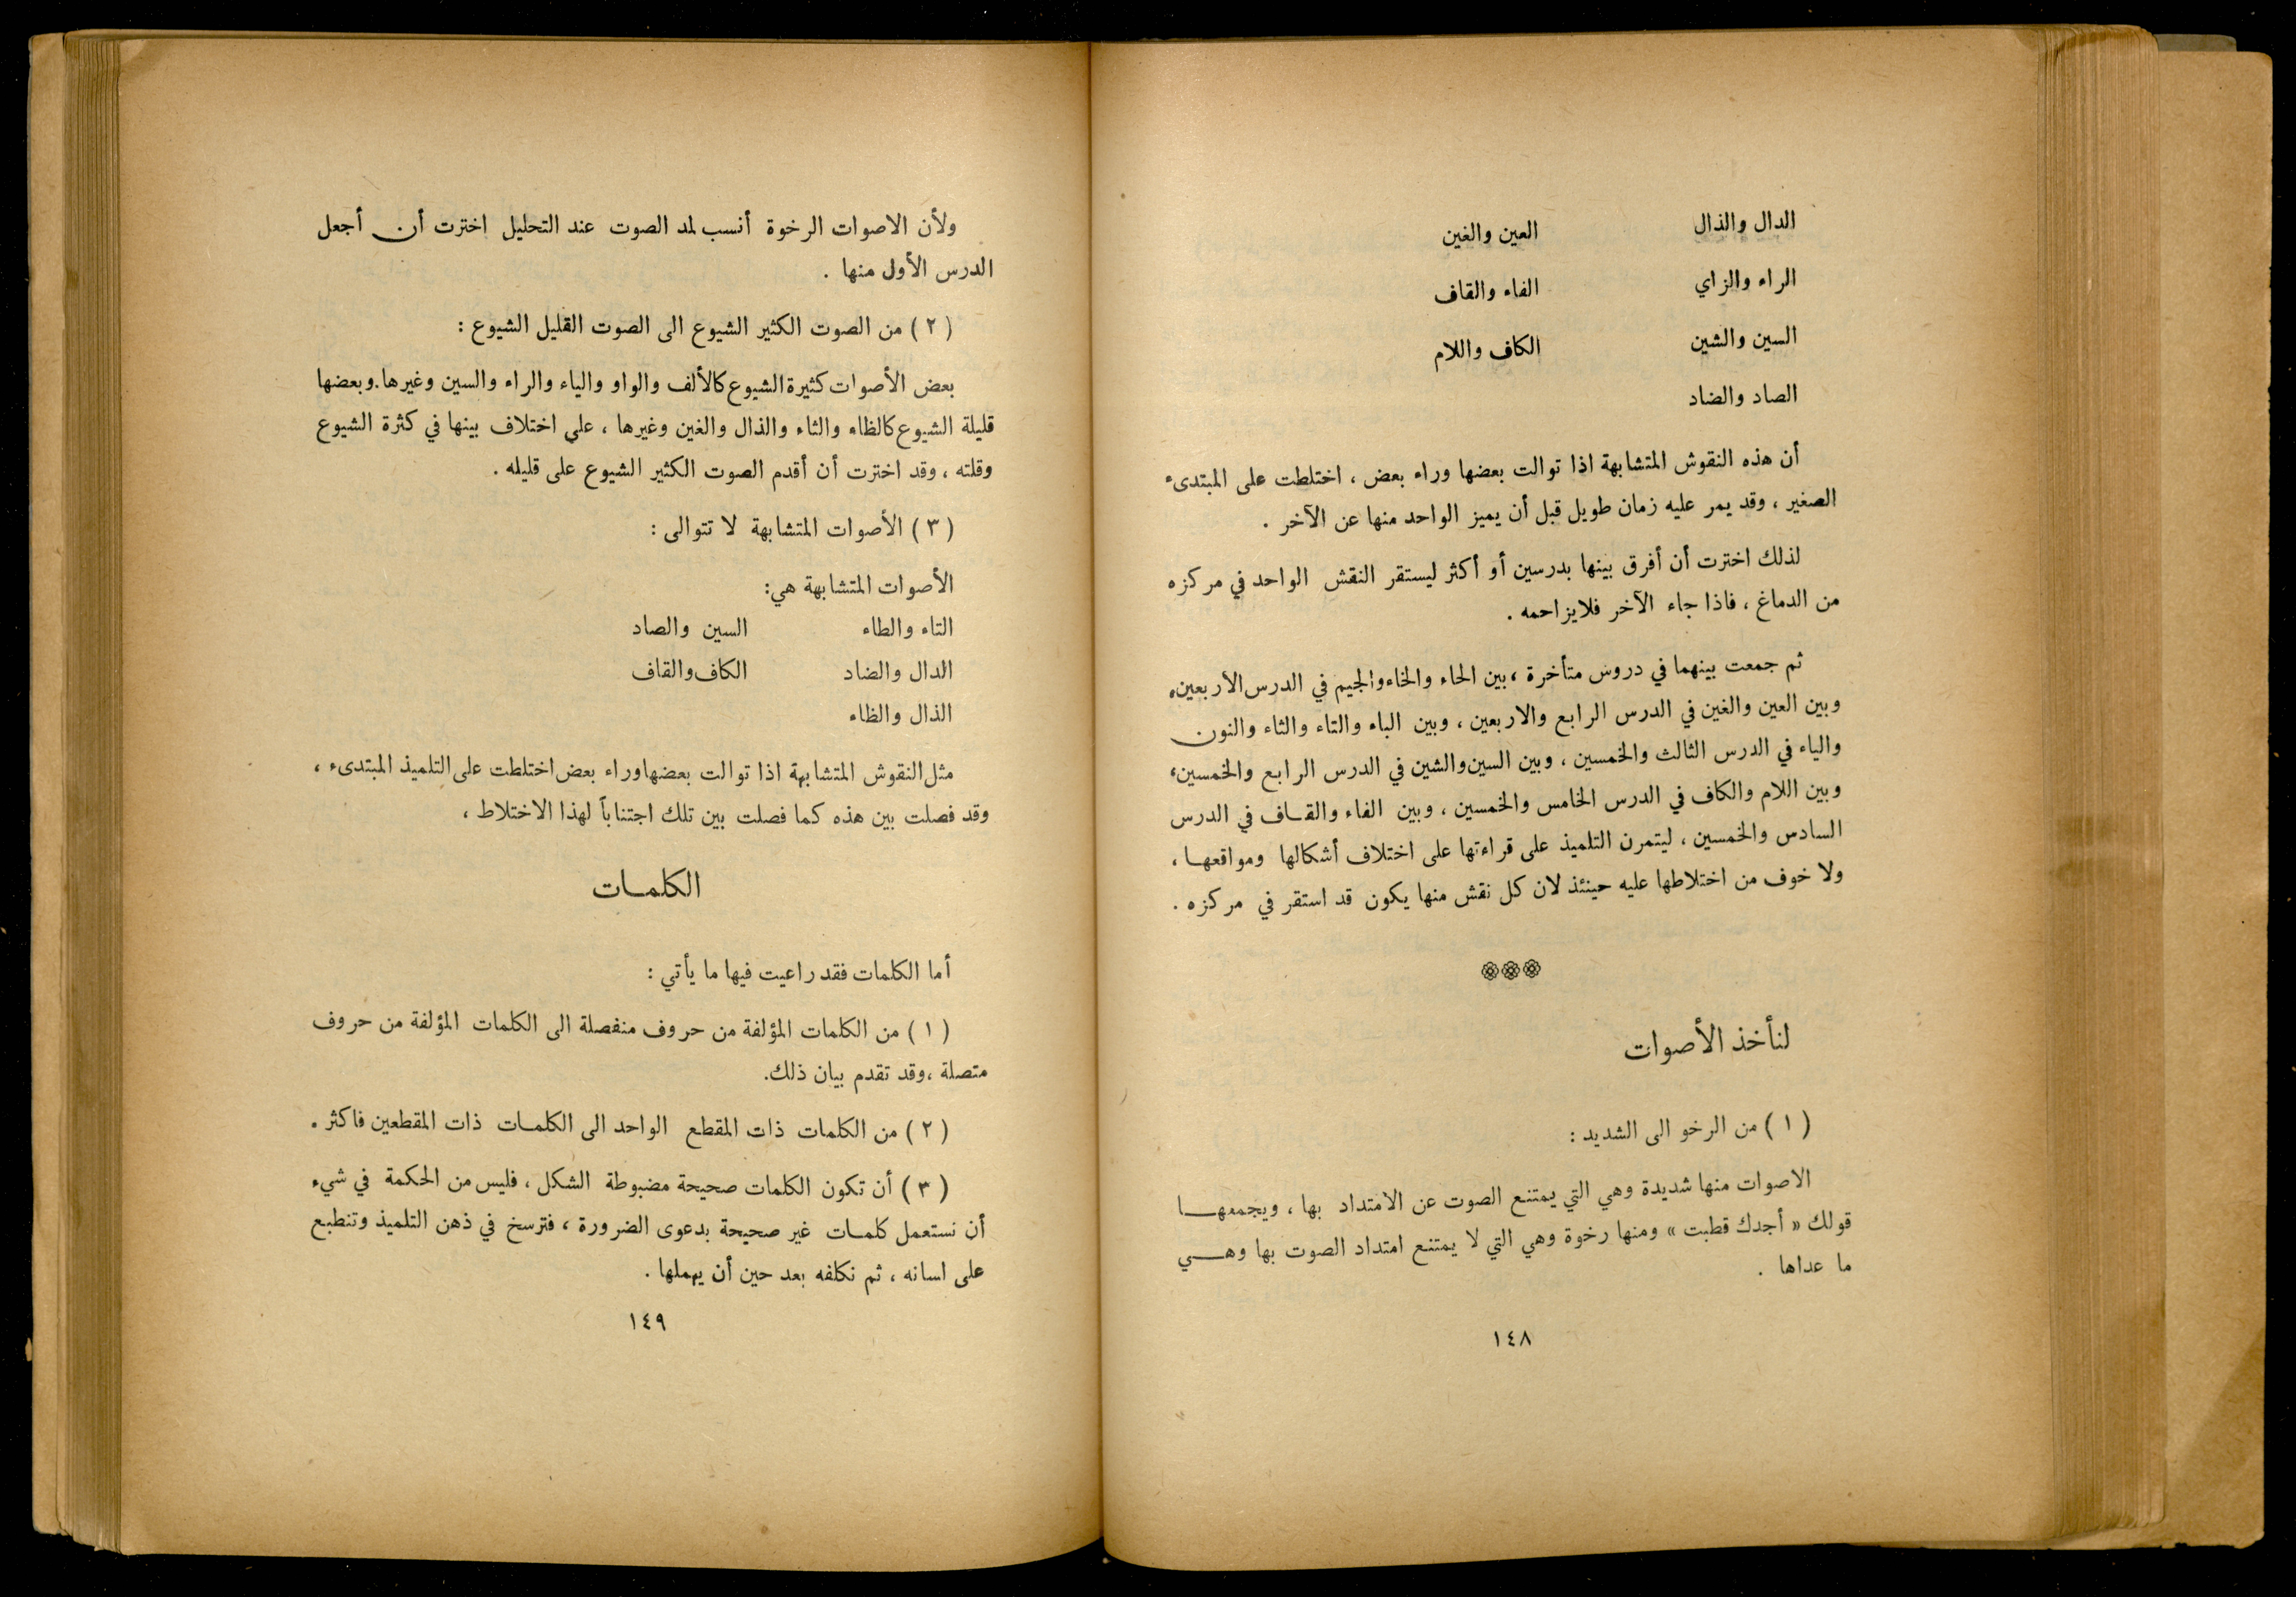 الدال والذال العين والغين
الراء والزاي الفاء والقاف
السين والشين الكاف واللام
الصاد والضاد
أن هذه النقوش المتشابهة اذا توالت بعضها وراء بعض ، اختلطت على المبتدىء
الصغير ، وقد يمر عليه زمان طويل قبل أن يميز الواحد منها عن الآخر .
لذلك اخترت أن أفرق بينها بدرسين أو أكثر ليستقر النقش الواحد في مركزه
من الدماغ ، فاذا جاء الآخر فلايزاحمه .
ثم جمعت بينهما في دروس متأخرة ، بين الحاء والخاء والجيم في الدرس الاربعين،
وبين العين والغين في الدرس الرابع والاربعين ، وبين الباء والتاء والثاء والنون
والياء في الدرس الثالث والخمسين ، وبين السين والشين في الدرس الرابع والخمسين،
وبين اللام والكاف في الدرس الخامس والخمسين ، وبين الفاء والقاف في الدرس
السادس والخمسين ، ليتمرن التلميذ على قراءتها على اختلاف أشكالها ومواقعها ،
ولا خوف من اختلاطها عليه حينئذ لان كل نقش منها يكون قد استقر في مركزه .
لنأخذ الأصوات
( ١ ) من الرخو الى الشديد :
الاصوات منها شديدة وهي التي يمتنع الصوت عن الامتداد بها ، ويجمعها
قولك « أجدك قطبت » ومنها رخوة وهي التي لا يمتنع امتداد الصوت بها وهي
ما عداها .
١٤٨
ولأن الاصوات الرخوة أنسب لمد الصوت عند التحليل اخترت أن أجعل
الدرس الأول منها .
( ٢ ) من الصوت الكثير الشيوع الى الصوت القليل الشيوع :
بعض الأصوات كثيرة الشيوع كالألف والواو والياء والراء والسين وغيرها.وبعضها
قليلة الشيوع كالظاء والثاء والذال والغين وغيرها ، على اختلاف بينها في كثرة الشيوع
وقلته ، وقد اخترت أن أقدم الصوت الكثير الشيوع على قليله .
( ٣ ) الأصوات المتشابهة لا تتوالى :
الأصوات المتشابهة هي:
التاء والطاء السين والصاد
الدال والضاد الكاف والقاف
الذال والظاء
مثل النقوش المتشابهة اذا توالت بعضها وراء بعض اختلطت على التلميذ المبتدىء ،
وقد فصلت بين هذه كما فصلت بين تلك اجتناباً لهذا الاختلاط ،
الكلمات
أما الكلمات فقد راعيت فيها ما يأتي :
( ١ ) من الكلمات المؤلفة من حروف منفصلة الى الكلمات المؤلفة من حروف
متصلة ،وقد تقدم بيان ذلك.
( ٢ ) من الكلمات ذات المقطع الواحد الى الكلمات ذات المقطعين فاكثر .
( ٣ ) أن تكون الكلمات صحيحة مضبوطة الشكل ، فليس من الحكمة في شيء
أن نستعمل كلمات غير صحيحة بدعوى الضرورة ، فترسخ في ذهن التلميذ وتنطبع
على لسانه ، ثم نكلفه بعد حين أن يهملها .
١٤٩